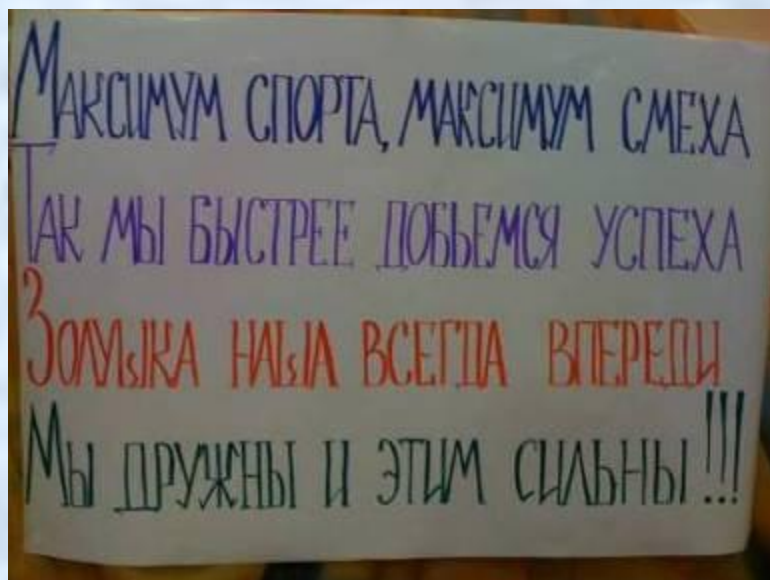 МАКСИМУМ СПОРТА, МАКСИМУМ СМЕХА
ТАК МЫ БЫСТРЕЕ ДОБЬЕМСЯ УСПЕХА
ЗОЛУШКА НАША ВСЕГДА ВПЕРЕДИ
МЫ ДРУЖНЫ И ЭТИМ СИЛЬНЫ!!!